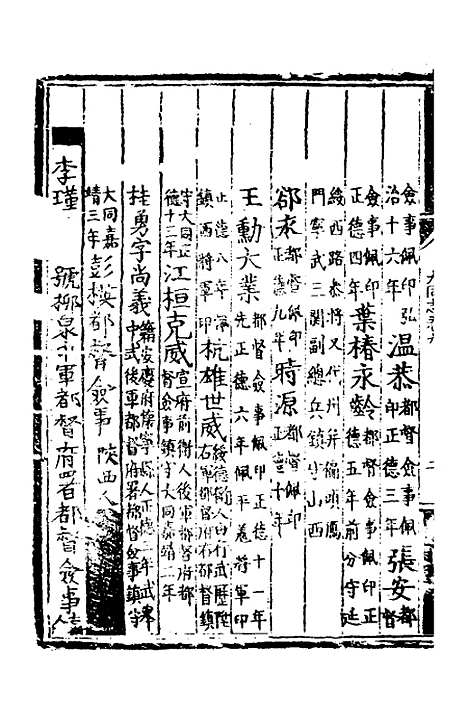 僉事佩印弘治十六年 温恭 都督僉事佩印正德三年 張安 都督
僉事佩印正德四年 葉椿永齡 都督僉事佩印正德五年前分守延
綏西路叅將又代州并偏頭鴈門寧武三關副總兵鎮守山西
郤永 都督佩印正德九年 時源 都督佩印正德十年
王勳大業 都督僉事佩印正德十一年先正德六年佩平羌將軍印
正德八年 鎮西將軍印 杭雄世威 右軍都督府都督鎮
守大同正德十三年 江桓克威 宣府前衛人後軍都督府都督僉事鎮守大同嘉靖二年
桂勇字尚義 籍安慶府 縣人正德二年武舉中式後軍都督府署都督僉事鎮守
大同嘉靖三年 彭楧 都督僉事 陝西人
李瑾 號柳泉 軍都督府署都督僉事